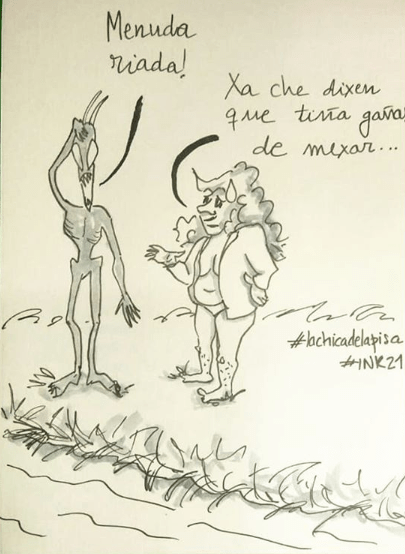 Menuda
riada!
Xa che dixen
que tiña gañas
de mexar...
#lachicadelapisa
#INK21